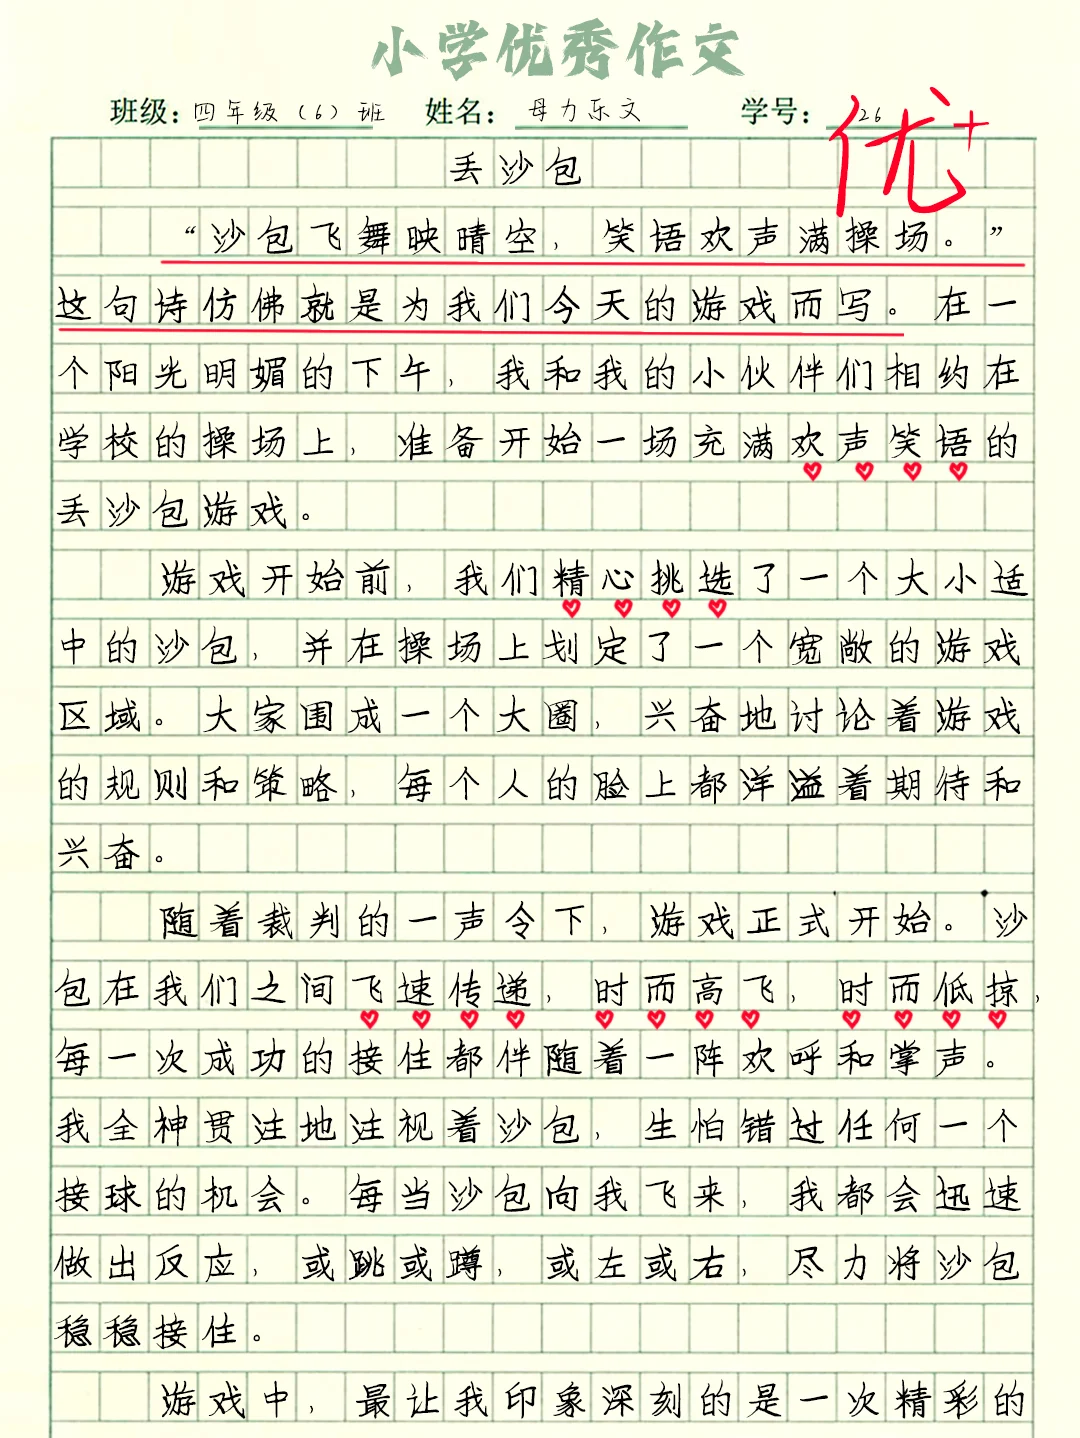 小学优秀作文
班级：四年级（6）班 姓名：母力乐文 学号：26
优+
丢沙包
“沙包飞舞映晴空，笑语欢声满操场。”
这句诗仿佛就是为我们今天的游戏而写。在一
个阳光明媚的下午，我和我的小伙伴们相约在
学校的操场上，准备开始一场充满欢声笑语的
丢沙包游戏。
游戏开始前，我们精心挑选了一个大小适
中的沙包，并在操场上划定了一个宽敞的游戏
区域。大家围成一个大圈，兴奋地讨论着游戏
的规则和策略，每个人的脸上都洋溢着期待和
兴奋。
随着裁判的一声令下，游戏正式开始。沙
包在我们之间飞速传递，时而高飞，时而低掠，
每一次成功的接住都伴随着一阵欢呼和掌声。
我全神贯注地注视着沙包，生怕错过任何一个
接球的机会。每当沙包向我飞来，我都会迅速
做出反应，或跳或蹲，或左或右，尽力将沙包
稳稳接住。
游戏中，最让我印象深刻的是一次精彩的